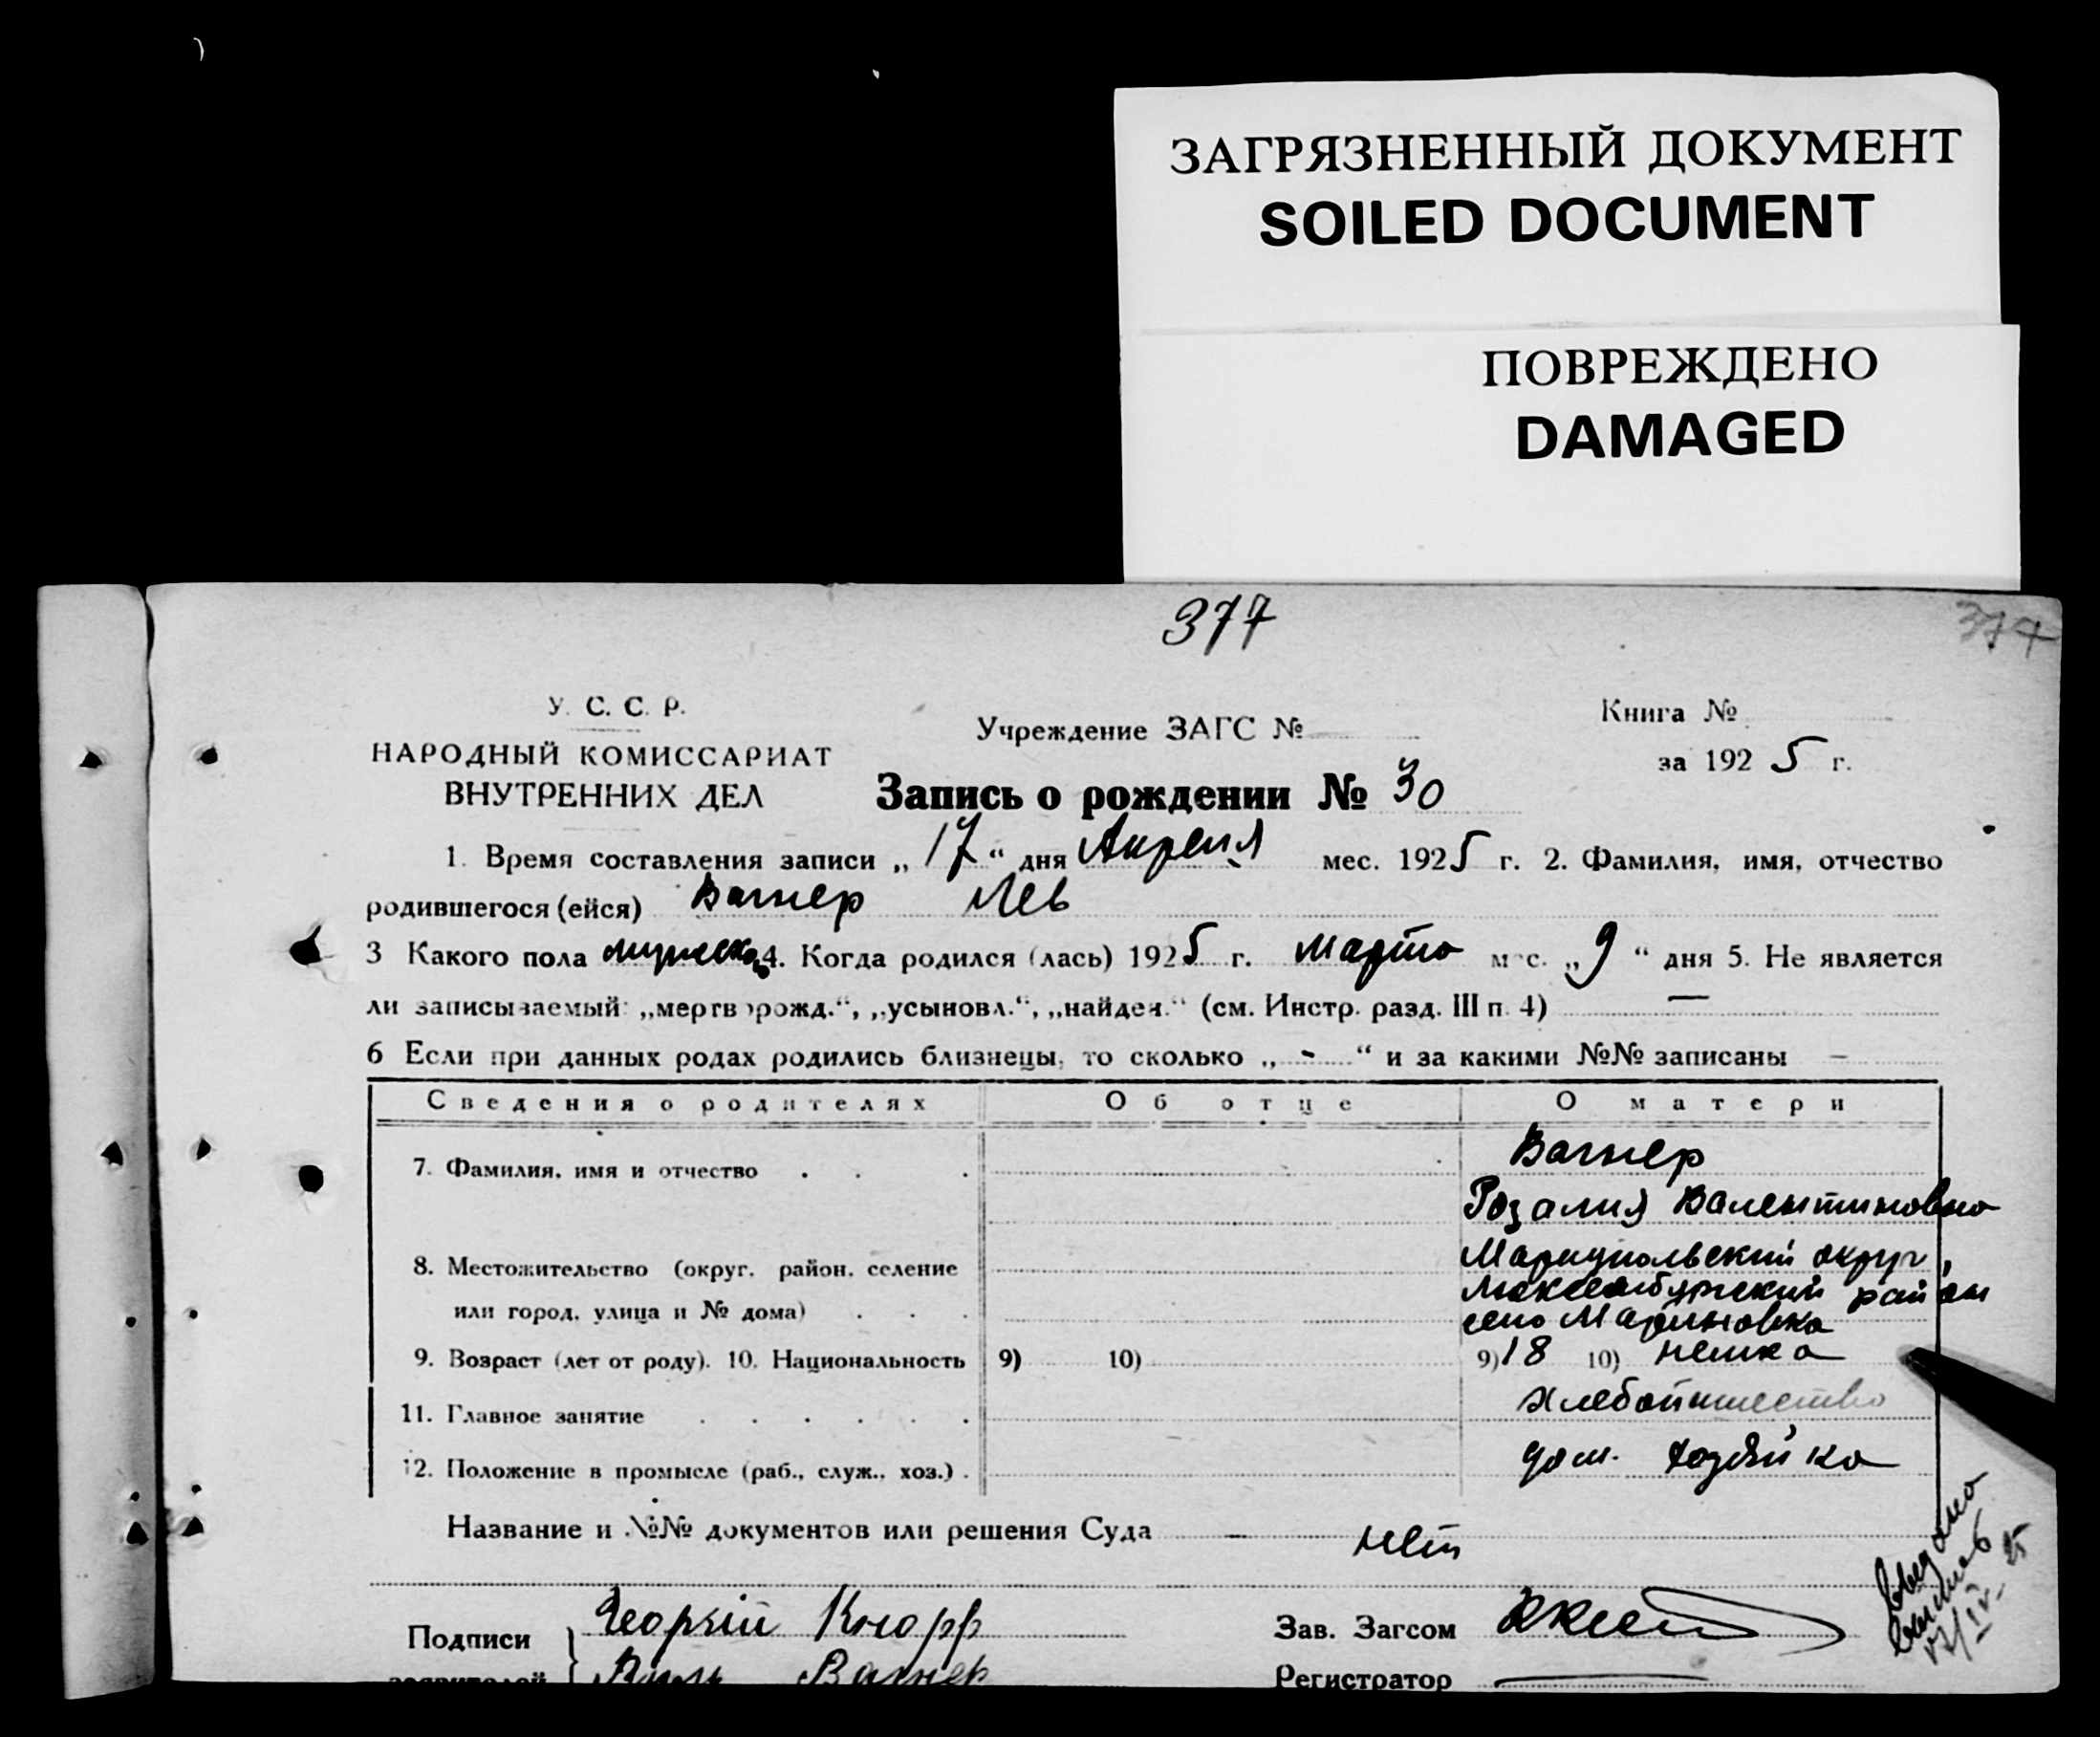 ЗАГРЯЗНЕННЫЙ ДОКУМЕНТ
SOILED DOCUMENT
ПОВРЕЖДЕНО
DAMAGED
377
377
У. С. С. Р.
НАРОДНЫЙ КОМИССАРИАТ
ВНУТРЕННИХ ДЕЛ
Учреждение ЗАГС №
Книга №
за 1925 г.
Запись о рождении № 30
1. Время составления записи „17“ дня Апреля мес. 1925 г. 2. Фамилия, имя, отчество
родившегося (ейся) Вагнер Лев
3 Какого пола мужеска 4. Когда родился (лась) 1925 г. Марта мес. „9“ дня 5. Не является
ли записываемый: „мертворожд.“, „усыновл.“, „найден.“ (см. Инстр. разд. III п. 4) —
6 Если при данных родах родились близнецы, то сколько „-“ и за какими №№ записаны —
Сведения о родителях Об отце О матери
7. Фамилия, имя и отчество . . . Вагнер
Розалия Валентиновна
8. Местожительство (округ, район, селение Мариупольский округ,
или город, улица и № дома) . . . район
село
9. Возраст (лет от роду). 10. Национальность 9) 10) 9) 18 10) немка
11. Главное занятие . . . . . . хлебопашество
12. Положение в промысле (раб., служ., хоз.) . дом. хозяйка
Название и №№ документов или решения Суда — нет
Подписи Георгий Кнорр
заявителей Вагнер
Зав. Загсом
Регистратор